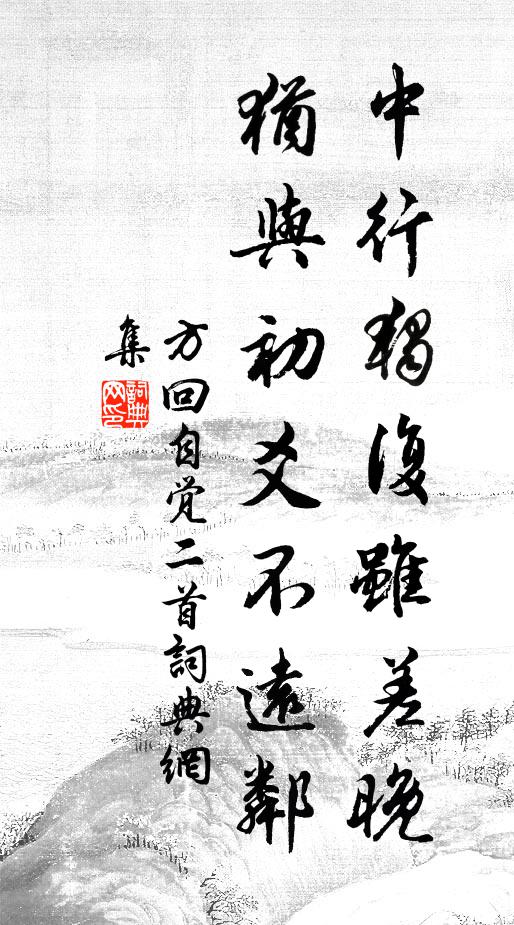 中行獨復雖差晚
猶與初爻不遠鄰
方回自觉二首詞典網
集
詞典網印